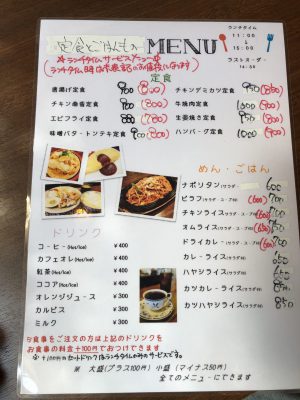 定食とごはんもの MENU
ランチタイム
11:00
15:00
ラストオーダー
14:30
※ランチタイムサービスメニュー
(ランチタイム時は赤表記のお値段になります)
定食
唐揚げ定食 900 (800)
チキン南蛮定食 (800)
エビフライ定食 (800)
味噌バタートンテキ定食 (800)
チキンデミカツ定食 950 (850)
牛焼肉定食 (850)
生姜焼き定食 (800)
ハンバーグ定食 900 (800)
めん・ごはん
ナポリタン(サラダ 600
ピラフ(サラダ・スープ付) (600) 700
チキンライス(サラダ・スープ付) (600)
オムライス(サラダ・スープ付) (650)
ドライカレー(サラダ・スープ付) (600) 700
カレーライス(サラダ付)
ハヤシライス(サラダ付) 650
カツカレーライス(サラダ付) 850
カツハヤシライス(サラダ付) 850
ドリンク
コーヒー(Hot/Ice) ¥400
カフェオレ(Hot/Ice) ¥400
紅茶(Hot/Ice) ¥400
ココア(Hot/Ice) ¥400
オレンジジュース ¥300
カルピス ¥300
ミルク ¥300
お食事をご注文の方は上記のドリンクを
お食事の料金+100円でおつけできます
※+100円のセットドリンクはランチタイムの時のサービスです。
※ 大盛(プラス100円) 小盛(マイナス50円)
全てのメニューにできます